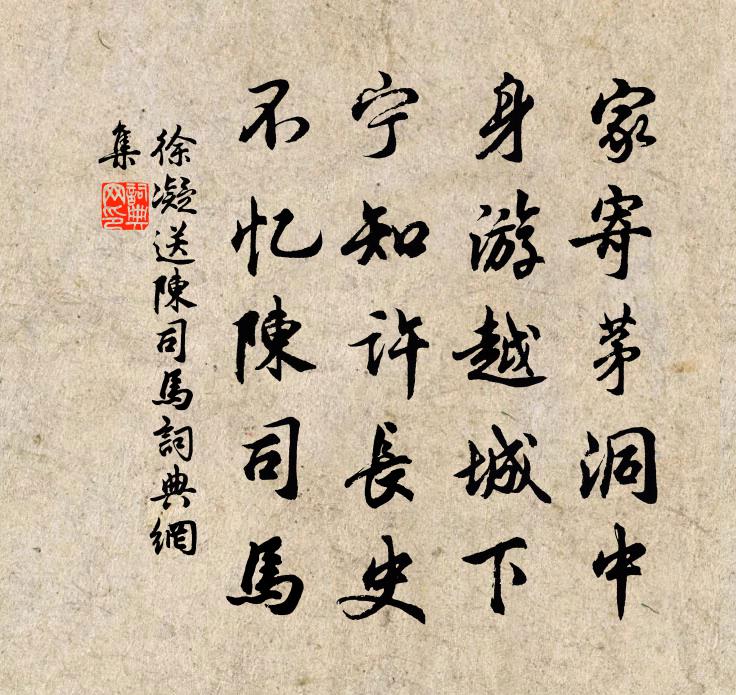 家寄茅洞中
身游越城下
宁知许長史
不忆陳司馬
徐凝送陳司馬詞典網
集
詞典网印